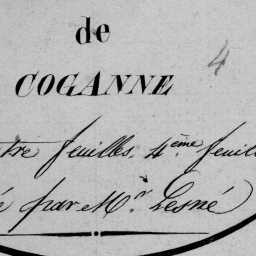 de
4
COGANNE
tre feuilles. 4ème feuil
é par Mr. Lesné